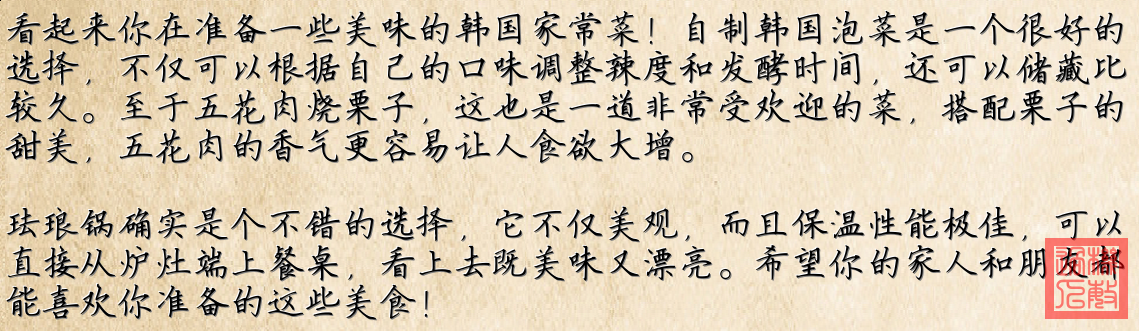 看起来你在准备一些美味的韩国家常菜！自制韩国泡菜是一个很好的
选择，不仅可以根据自己的口味调整辣度和发酵时间，还可以储藏比
较久。至于五花肉烧栗子，这也是一道非常受欢迎的菜，搭配栗子的
甜美，五花肉的香气更容易让人食欲大增。
珐琅锅确实是个不错的选择，它不仅美观，而且保温性能极佳，可以
直接从炉灶端上餐桌，看上去既美味又漂亮。希望你的家人和朋友都
能喜欢你准备的这些美食！